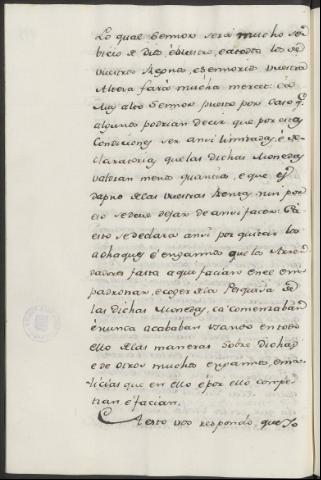 Lo qual Sennor será mucho ser
bicio de Dios, é vuestro, é á todos los de
vuestros Regnos, é Sennorios vuestra
Alteza fará mucha merced: Ca
Muy alto Sennor puesto por caso q.
algunos podrian decir que por estas
Condiciones ser ansi limitadas, é de-
claratorias que las dichas Monedas
valdran menos quantias, é que es
dapno de las vuestras Rentas, nin por
eso se deve dejar de ansi facer: Ca
esto se declara ansi por quitar los
achaques é engannos que los Arren
dadores fasta aqui facian en el em
padronar, é coger de la Pesquisa de
las dichas Monedas, ca comenzaban
é nunca acababan usando en todo
ello de las maneras sobre dichas
é de otros muchos engannos, é ma-
licias que en ello é por ello compe-
tian é facian.
A esto vos respondo, que Yo